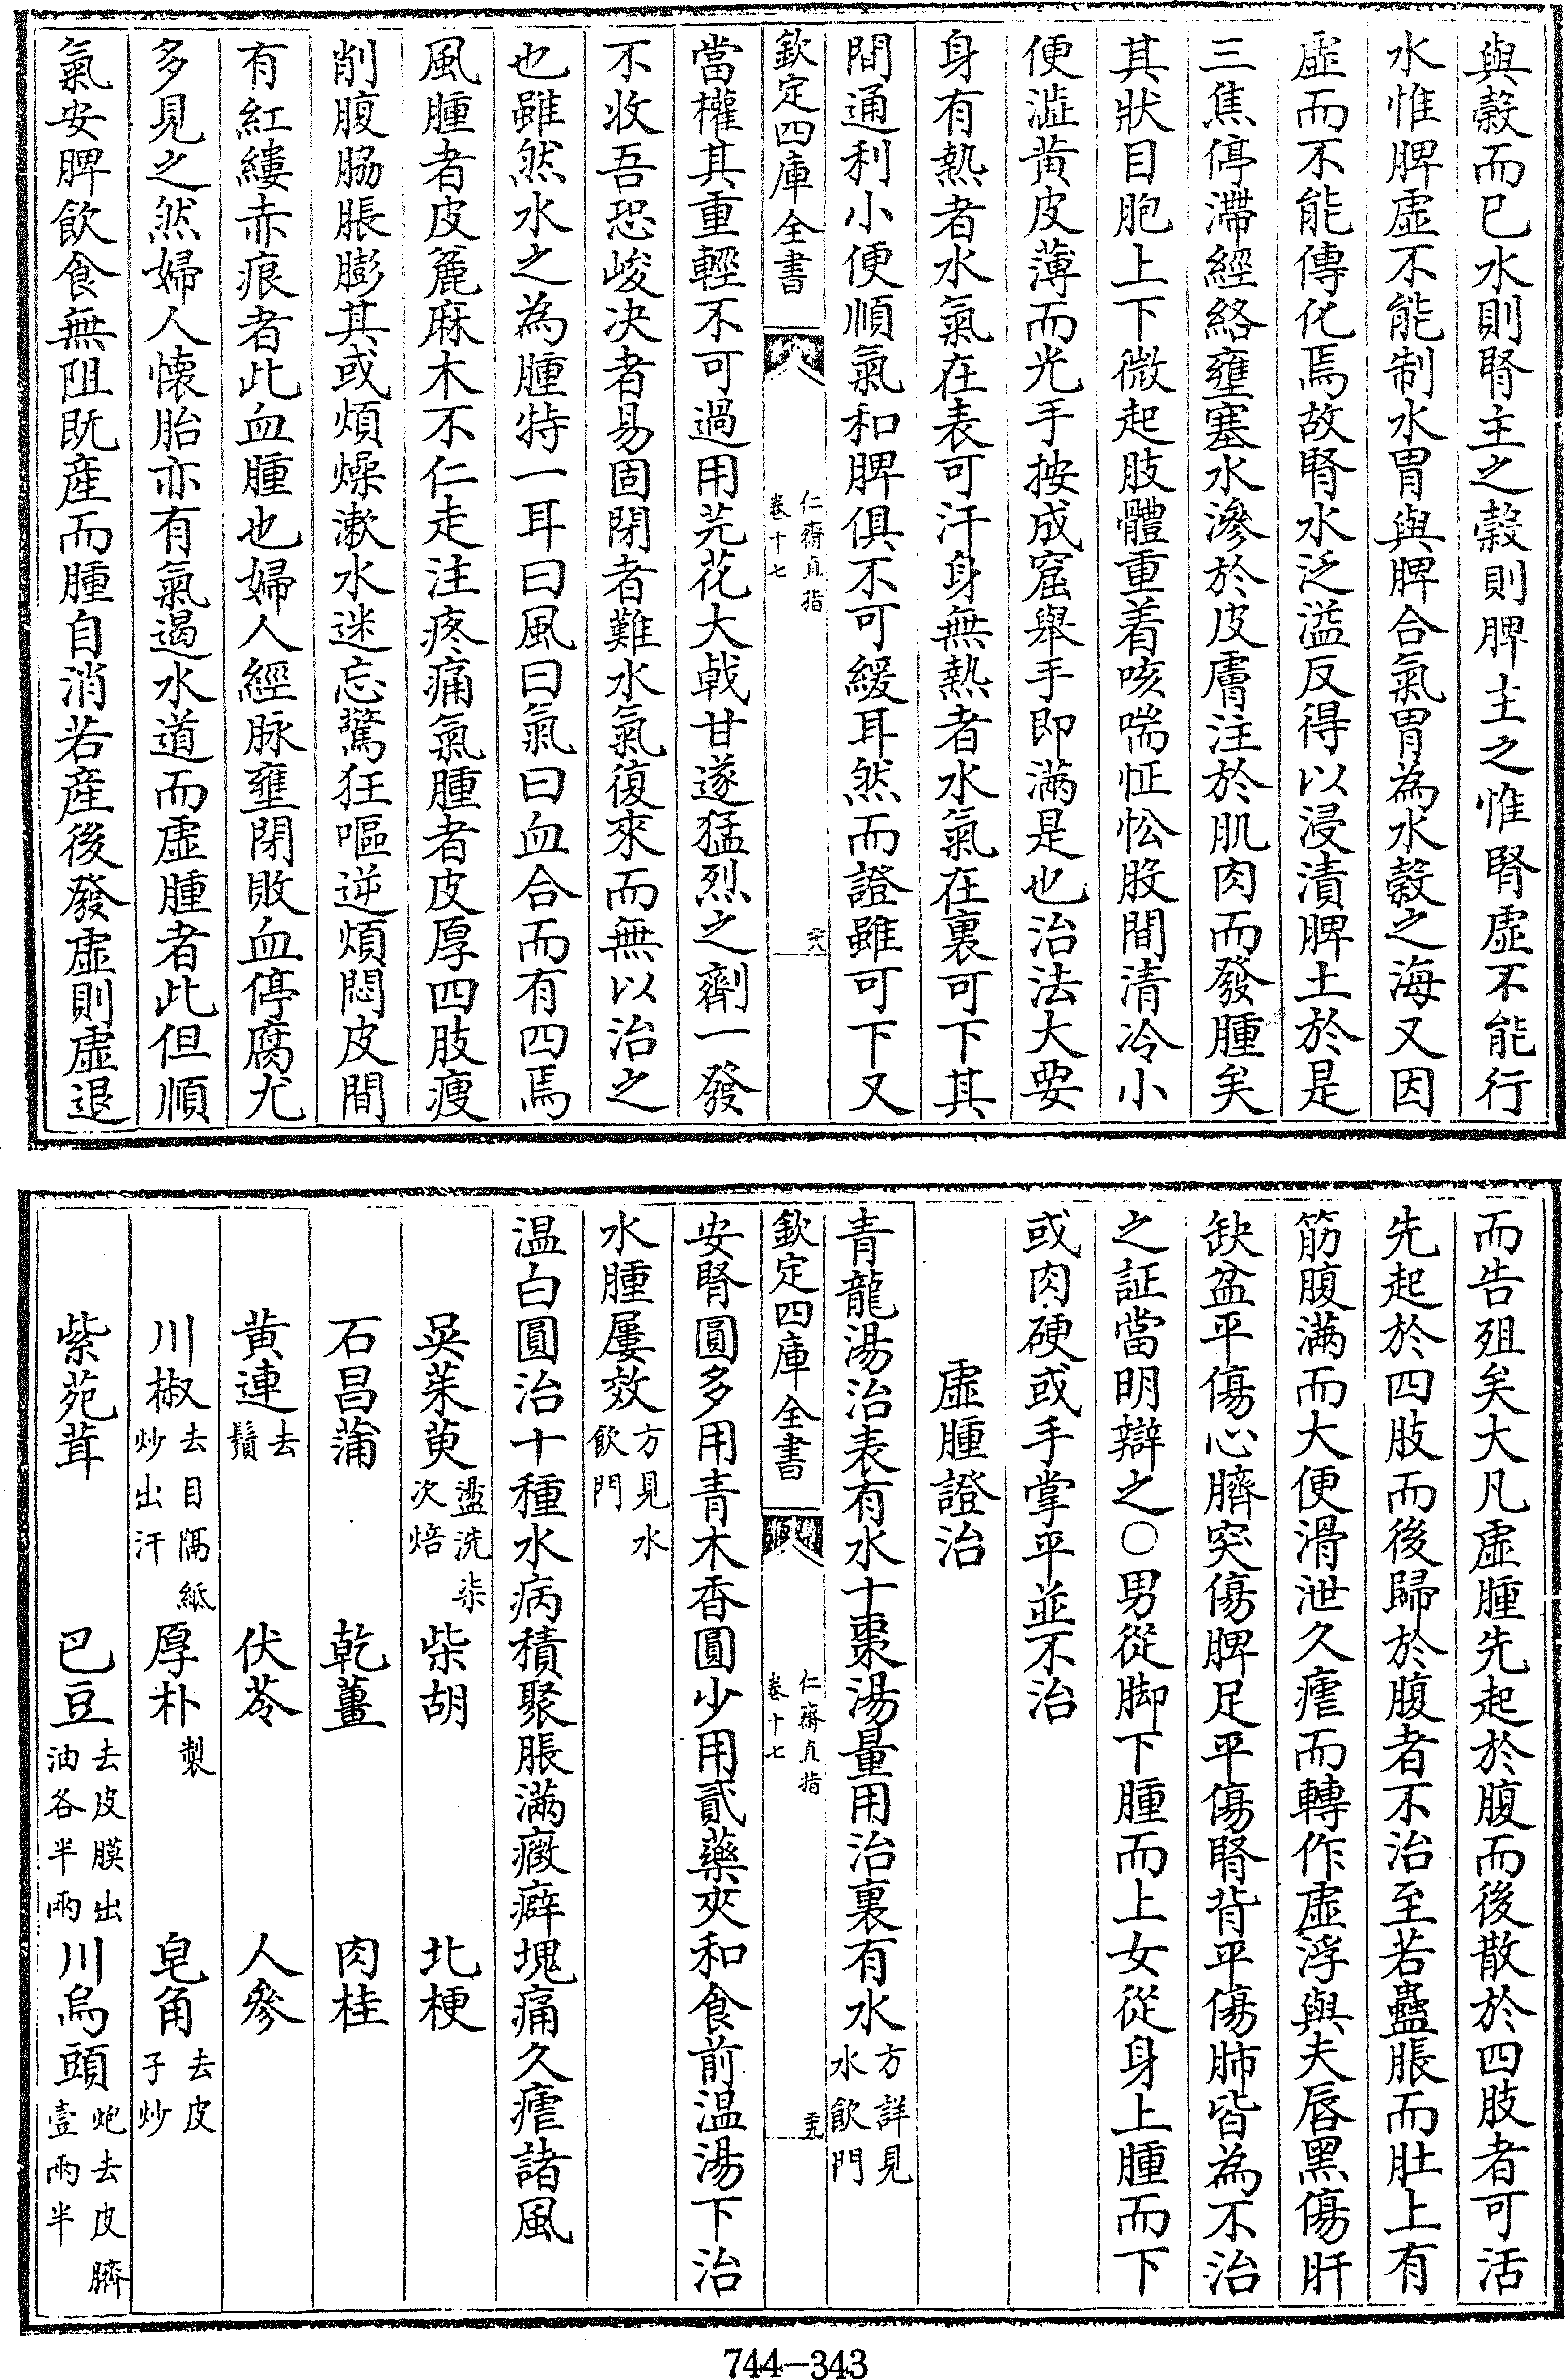 與穀而已水則腎主之穀則脾主之惟腎虛不能行
水惟脾虛不能制水胃與脾合氣胃為水穀之海又因
虛而不能傳化焉故腎水泛溢反得以浸漬脾土於是
三焦停滯經絡壅塞水滲於皮膚注於肌肉而發腫矣
其狀目胞上下微起肢體重着咳喘怔忪股間清冷小
便澁黄皮薄而光手按成窟舉手即滿是也治法大要
身有熱者水氣在表可汗身無熱者水氣在裏可下其
間通利小便順氣和脾俱不可緩耳然而證雖可下又
欽定四庫全書
仁齋直指
卷十七
二十八
當權其重輕不可過用芫花大戟甘遂猛烈之劑一發
不收吾恐峻决者易固閉者難水氣復來而無以治之
也雖然水之為腫特一耳曰風曰氣曰血合而有四焉
風腫者皮麄麻木不仁走注疼痛氣腫者皮厚四肢瘦
削腹脇脹膨其或煩燥漱水迷忘驚狂嘔逆煩悶皮間
有紅縷赤痕者此血腫也婦人經脉壅閉敗血停腐尤
多見之然婦人懷胎亦有氣遏水道而虛腫者此但順
氣安脾飲食無阻既産而腫自消若産後發虛則虛退
而告殂矣大凡虛腫先起於腹而後散於四肢者可活
先起於四肢而後歸於腹者不治至若蠱脹而肚上有
筋腹滿而大便滑泄久瘧而轉作虛浮與夫唇黑傷肝
缺盆平傷心臍突傷脾足平傷腎背平傷肺皆為不治
之証當明辯之○男從脚下腫而上女從身上腫而下
或肉硬或手掌平並不治
虛腫證治
青龍湯治表有水十棗湯量用治裏有水方詳見水飲門
欽定四庫全書
仁齋直指
卷十七
二十九
安腎圓多用青木香圓少用貳藥夾和食前温湯下治
水腫屢效方見水飲門
温白圓治十種水病積聚脹滿癥癖塊痛久瘧諸風
吳茱萸盪洗柒次焙 柴胡 北梗
石昌蒲 乾薑 肉桂
黄連去鬚 伏苓 人參
川椒去目隔紙炒出汗 厚朴製 皂角去皮子炒
紫苑茸 巴豆去皮膜出油各半兩 川烏頭炮去皮臍壹兩半
744–343